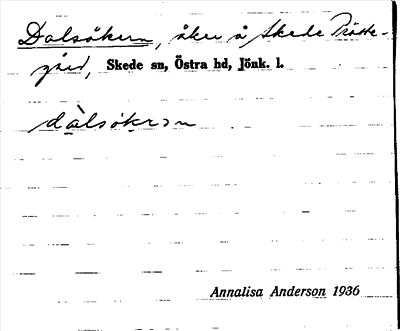 Dalsåkern, åker å Skede Präste-
gård, Skede sn, Östra hd, Jönk. l.
dàlsòkərən
Annalisa Anderson 1936